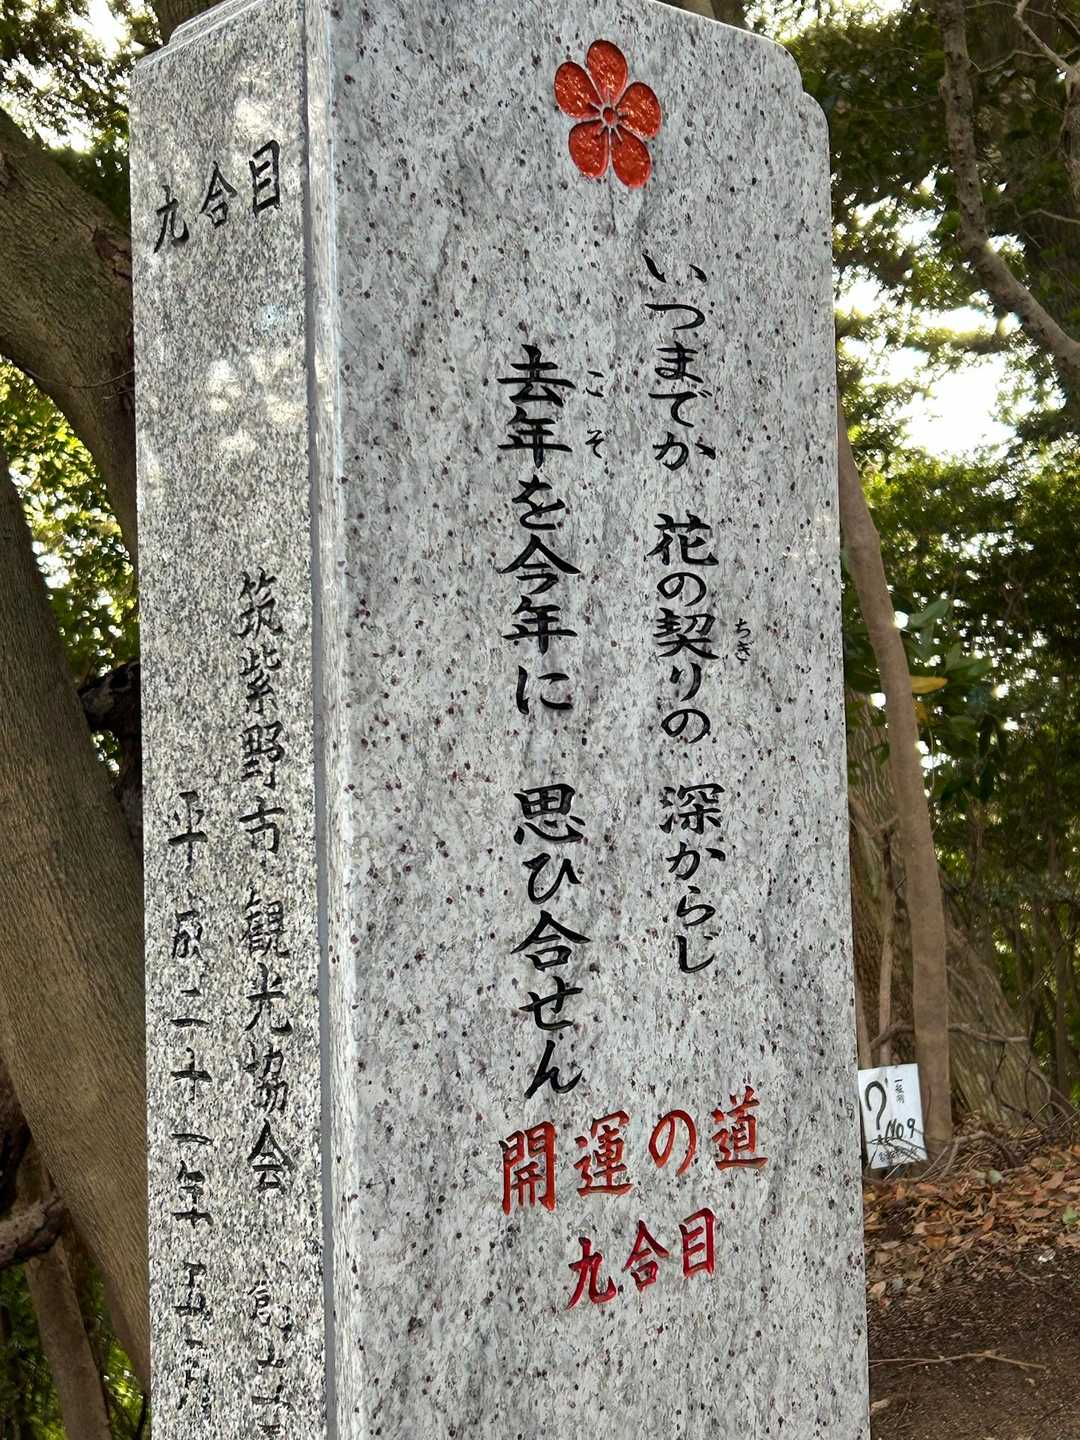 いつまでか 花の契りの 深からじ
ちぎ
去年を今年に 思ひ合せん
こぞ
開運の道
九合目
九合目
筑紫野市観光協会 創立
平成二十一年十二月
一夜洞
?
No9